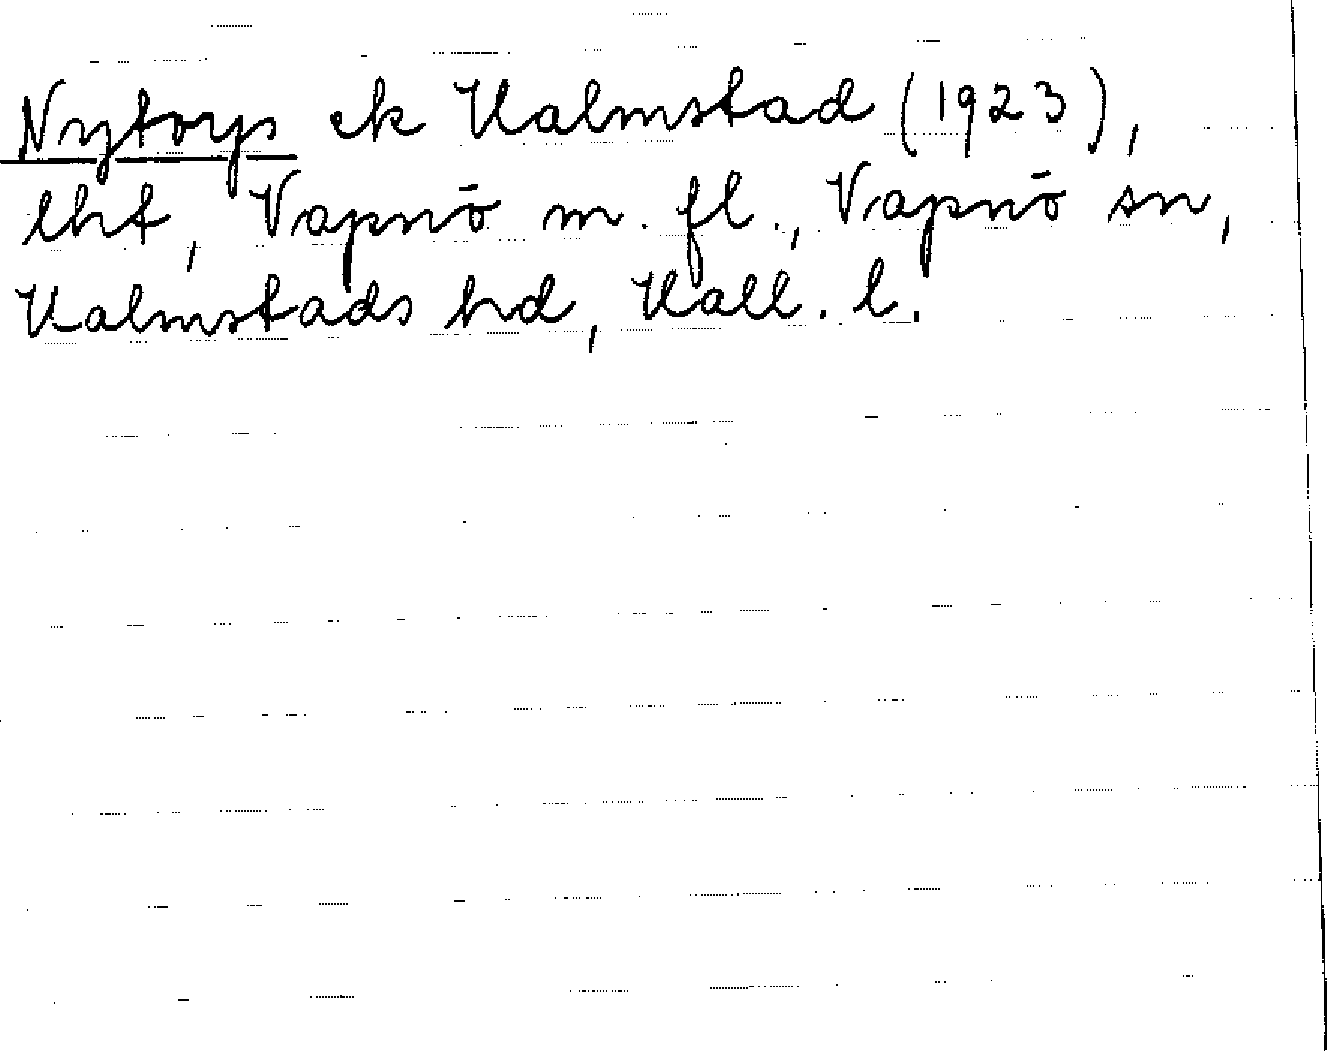 Nytorps ek Halmstad (1923),
lht, Vapnö m. fl., Vapnö sn,
Halmstads hd, Hall. l.